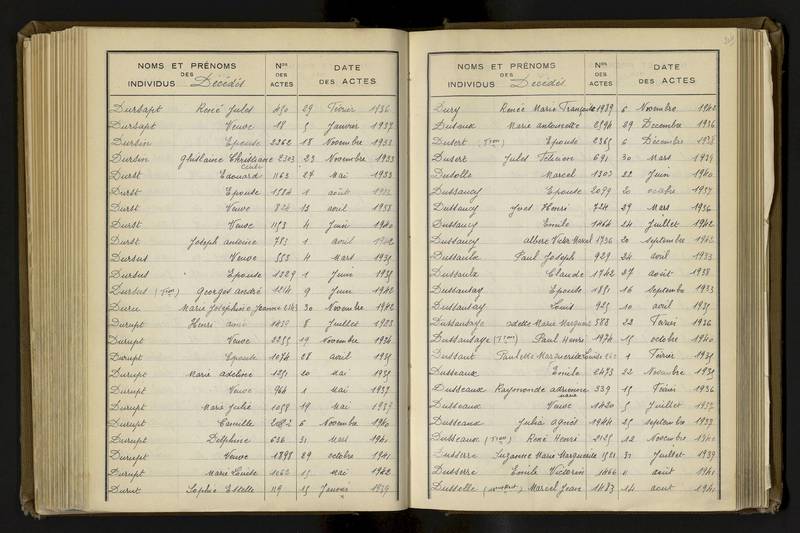 NOMS ET PRÉNOMS
DES
INDIVIDUS Décédés
Nos
DES
ACTES
DATE
DES ACTES
Dursapt René Jules 29 Février 1936
Dursapt Veuve 18 5 Janvier 1937
Dursin Epouse 2362 18 Novembre 1933
Dursin Ghislaine Christiane 23 Novembre 1933
Durst Edouard 1163 27 Mai 1933
Durst Epouse 1 août
Durst Veuve 824 13 avril 1933
Durst Veuve 1153 4 Juin 1940
Durst Joseph antoine 783 1 avril 1942
Dursus Veuve 553 4 Mars 1935
Dursus Epouse 1029 1 Juin 1935
Dursus Georges andré 1214 9 Juin 1942
Duru Marie Joséphine Jeanne 30 Novembre 1942
Durupt Henri 1439 8 Juillet 1933
Durupt Veuve 2255 19 Novembre 1934
Durupt Epouse 1074 28 avril 1935
Durupt Marie adeline 1251 20 Mai 1935
Durupt Veuve 964 1 Mai 1937
Durupt Marie Julie 1058 19 Mai 1939
Durupt Camille 6 Novembre 1940
Durupt Delphine 636 31 Mars 1941
Durupt Veuve 1898 29 octobre 1941
Durupt Marie Louise 1062 15 Mai 1942
Durut Sophie Estelle 119 15 Janvier 1939
NOMS ET PRÉNOMS
DES
INDIVIDUS Décédés
Nos
DES
ACTES
DATE
DES ACTES
Dury Renée Marie Françoise 1989 6 Novembre 1942
Dusaux Marie antoinette 2594 29 Decembre 1936
Dusert Epouse 2365 6 Décembre 1938
Dusert Jules 691 30 Mars 1934
Dusolle Marcel 1303 22 Juin 1940
Dussaucy Epouse 2099 20 octobre 1937
Dussaucy Yves Henri 724 29 Mars 1936
Dussaucy Emile 1464 24 Juillet 1942
Dussaucy albert Victor Marcel 1736 20 septembre 1942
Dussaulx Paul Joseph 929 24 avril 1933
Dussaulx Claude 1742 27 août 1938
Dussausay Epouse 1891 16 septembre 1933
Dussausay Louis 925 10 avril 1935
Dussausaye odette Marie 388 22 Février 1936
Dussausaye Paul Henri 1974 15 octobre 1940
Dussaut Paulette Marguerite Louise 1 Février 1935
Dusseaux Emile 2473 22 Novembre 1935
Dusseaux Raymonde adrienne 339 15 Février 1936
Dusseaux Veuve 1420 5 Juillet 1937
Dusseaux Julia agnès 1944 25 septembre 1937
Dusseaux René Henri 2125 12 Novembre 1940
Dusserre Suzanne Marie Marguerite 1521 31 Juillet 1939
Dusserre Emile Victorin 1466 11 août 1940
Dussolle Marcel Jean 1483 14 aout 1940